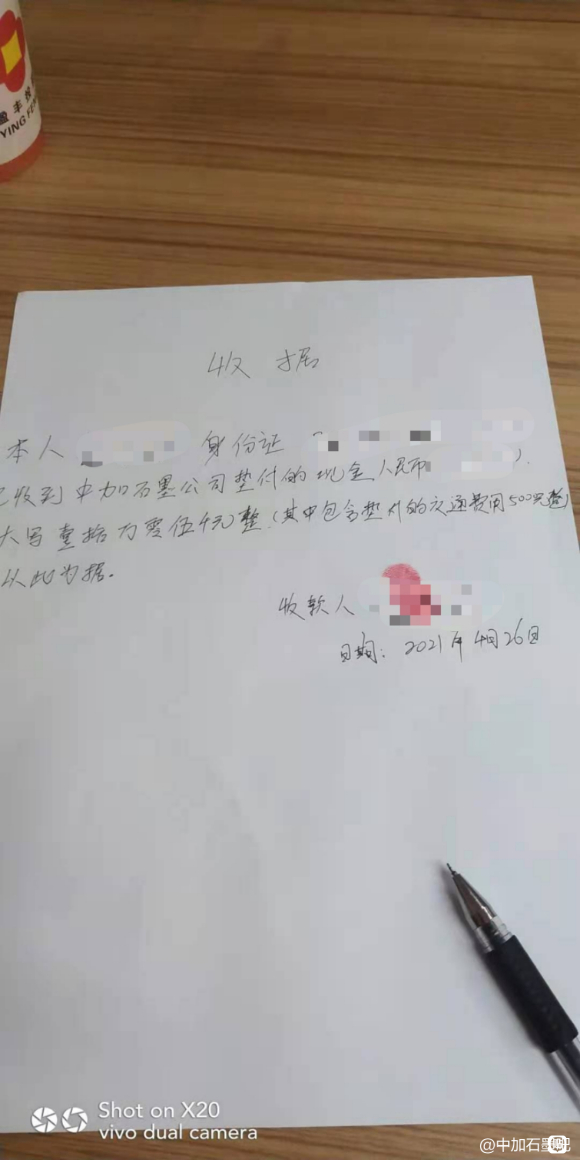 丰
YING FEN
收 据
本人 身份证 ( ).
已收到中加石墨公司垫付的现金人民币
大写壹拾万零伍千元整.(其中包含垫付的交通费用500元整)
以此为据.
收款人
日期: 2021年4月26日
Shot on X20
vivo dual camera
@中加石墨吧